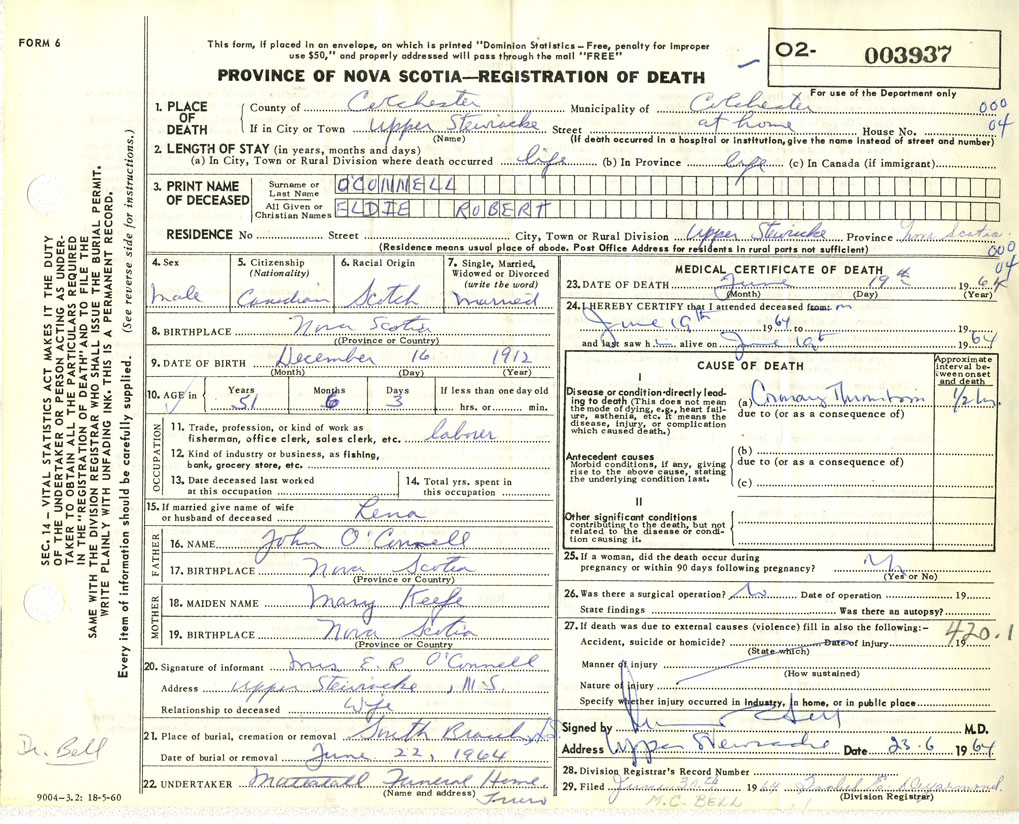 FORM 6
This form, if placed in an envelope, on which is printed "Dominion Statistics—Free, penalty for improper
use $50," and properly addressed will pass through the mail "FREE"
PROVINCE OF NOVA SCOTIA—REGISTRATION OF DEATH
O2- 003937
For use of the Department only
000
04
1. PLACE OF DEATH
County of Colchester Municipality of Colchester
If in City or Town Upper Stewiacke Street at home House No.
(Name) (If death occurred in a hospital or institution, give the name instead of street and number)
2. LENGTH OF STAY (in years, months and days)
(a) In City, Town or Rural Division where death occurred life (b) In Province life (c) In Canada (if immigrant)
3. PRINT NAME OF DECEASED
Surname or Last Name O'CONNELL
All Given or Christian Names ELDIE ROBERT
RESIDENCE No Street City, Town or Rural Division Upper Stewiacke Province Nova Scotia
(Residence means usual place of abode. Post Office Address for residents in rural parts not sufficient)
000
04
4. Sex
male
5. Citizenship
(Nationality)
Canadian
6. Racial Origin
Scotch
7. Single, Married, Widowed or Divorced
(write the word)
Married
8. BIRTHPLACE Nova Scotia
(Province or Country)
9. DATE OF BIRTH December 16 1912
(Month) (Day) (Year)
10. AGE in Years Months Days If less than one day old
51 6 3 hrs. or min.
OCCUPATION
11. Trade, profession, or kind of work as
fisherman, office clerk, sales clerk, etc. laborer
12. Kind of industry or business, as fishing,
bank, grocery store, etc.
13. Date deceased last worked
at this occupation
14. Total yrs. spent in
this occupation
15. If married give name of wife
or husband of deceased Lena
FATHER
16. NAME John O'Connell
17. BIRTHPLACE Nova Scotia
(Province or Country)
MOTHER
18. MAIDEN NAME Mary Keefe
19. BIRTHPLACE Nova Scotia
(Province or Country)
20. Signature of informant Mrs E R O'Connell
Address Upper Stewiacke, N.S.
Relationship to deceased Wife
21. Place of burial, cremation or removal Smith Branch
Date of burial or removal June 22, 1964
22. UNDERTAKER Mattatall Funeral Home,
(Name and address) Truro
MEDICAL CERTIFICATE OF DEATH
23. DATE OF DEATH June 19th 1964
(Month) (Day) (Year)
24. I HEREBY CERTIFY that I attended deceased from: on
June 19th 1964 to 19
and last saw h alive on June 19th 1964
CAUSE OF DEATH
Approximate interval between onset and death
I
Disease or condition directly leading to death (This does not mean
the mode of dying, e.g., heart failure, asthenia, etc. It means the
disease, injury, or complication
which caused death.)
(a) Coronary Thrombosis 1/2 hr.
due to (or as a consequence of)
Antecedent causes
Morbid conditions, if any, giving
rise to the above cause, stating
the underlying condition last.
(b)
due to (or as a consequence of)
(c)
II
Other significant conditions
contributing to the death, but not
related to the disease or condition causing it.
25. If a woman, did the death occur during
pregnancy or within 90 days following pregnancy?
(Yes or No)
26. Was there a surgical operation? No Date of operation 19
State findings Was there an autopsy?
27. If death was due to external causes (violence) fill in also the following:—
420.1
Accident, suicide or homicide? Date of injury 19
(State which)
Manner of injury
(How sustained)
Nature of injury
Specify whether injury occurred in industry, in home, or in public place
Signed by M.D.
Address Upper Stewiacke Date 23-6 1964
28. Division Registrar's Record Number
29. Filed June 30th 1964
(Division Registrar)
M.C. BELL
SEC. 14—VITAL STATISTICS ACT MAKES IT THE DUTY
OF THE UNDERTAKER OR PERSON ACTING AS UNDER-
TAKER TO OBTAIN ALL THE PARTICULARS REQUIRED
IN THE "REGISTRATION OF DEATH" AND TO FILE THE
SAME WITH THE DIVISION REGISTRAR WHO SHALL ISSUE THE BURIAL PERMIT.
WRITE PLAINLY WITH UNFADING INK. THIS IS A PERMANENT RECORD.
Every item of information should be carefully supplied. (See reverse side for instructions.)
Dr. Bell
9004-3.2: 18-5-60